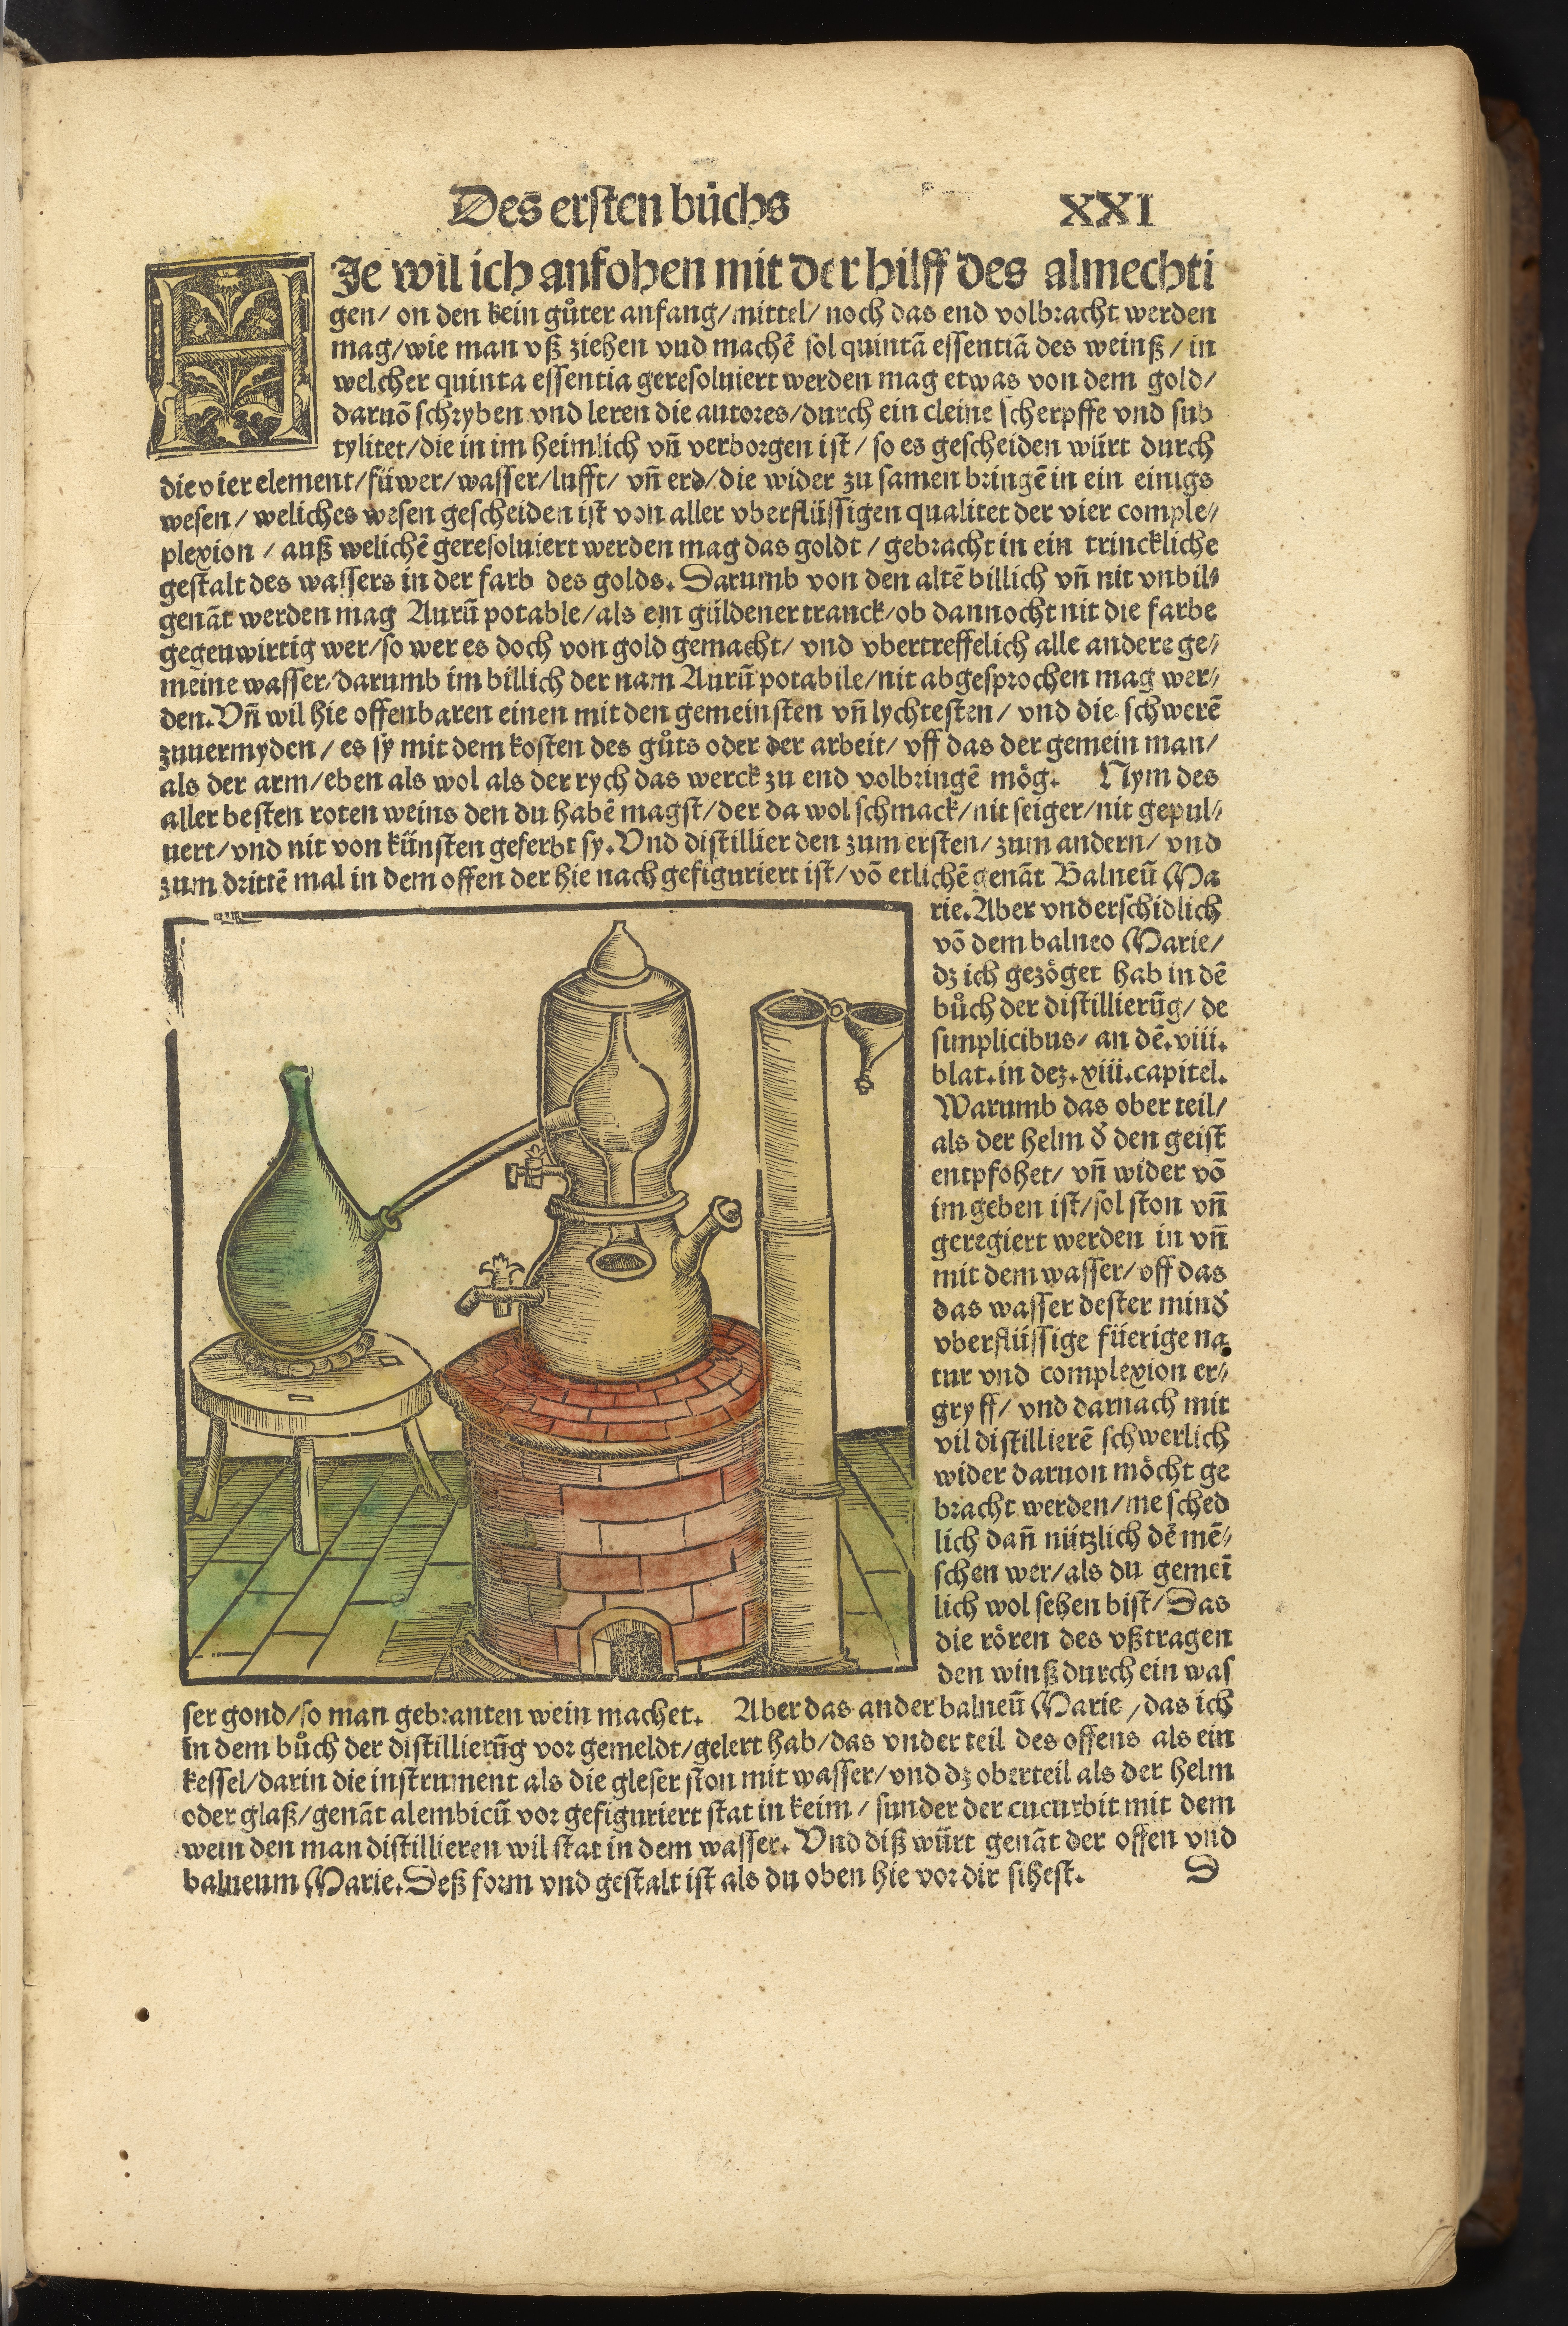 Des ersten bůchs XXI
HJe wil ich anfohen mit der hilff des almechti
gen/ on den kein gůter anfang/mittel/ noch das end volbracht werden
mag/wie man vß ziehen vnd machē sol quintā essentiā des weinß/ in
welcher quinta essentia geresoluiert werden mag etwas von dem gold/
daruō schryben vnd leren die autores/durch ein cleine scherpffe vnd sub
tylitet/die in im heimlich vn̄ verborgen ist/ so es gescheiden würt durch
die vier element/füwer/wasser/lufft/ vn̄ erd/die wider zu samen bringē in ein einigs
wesen/ weliches wesen gescheiden ist von aller vberflüssigen qualitet der vier comple⸗
plexion / auß welichē geresoluiert werden mag das goldt / gebracht in ein trinckliche
gestalt des wassers in der farb des golds. Darumb von den altē billich vn̄ nit vnbil⸗
genāt werden mag Aurū potable/als ein güldener tranck/ob dannocht nit die farbe
gegenwirtig wer/so wer es doch von gold gemacht/ vnd vbertreffelich alle andere ge⸗
meine wasser/darumb im billich der nam Aurū potabile/nit abgesprochen mag wer⸗
den. Vn̄ wil hie offenbaren einen mit den gemeinsten vn̄ lychtesten/ vnd die schwerē
zuuermyden/ es sy mit dem kosten des gůts oder der arbeit/ vff das der gemein man/
als der arm/eben als wol als der rych das werck zu end volbringē mög. Nym des
aller besten roten weins den du habē magst/der da wol schmack/nit seiger/nit gepul⸗
uert/vnd nit von künsten geferbt sy. Vnd distillier den zum ersten/ zum andern/ vnd
zum drittē mal in dem offen der hie nach gefiguriert ist/ vō etlichē genāt Balneū Ma
rie. Aber vnderschidlich
vō dem balneo Marie/
dz ich gezöget hab in dē
bůch der distillierūg/ de
simplicibus/ an dē. viii.
blat. in dez. xiii. capitel.
Warumb das ober teil/
als der helm d̄ den geist
entpfohet/ vn̄ wider vō
im geben ist/sol ston vn̄
geregiert werden in vn̄
mit dem wasser/ vff das
das wasser dester mind̄
vberflüssige füerige na
tur vnd complexion er⸗
gryff/ vnd darnach mit
vil distillierē schwerlich
wider daruon möcht ge
bracht werden/me sched
lich dan̄ nützlich dē mē⸗
schen wer/als du gemeī
lich wol sehen bist/Das
die rören des vßtragen
den winß durch ein was
ser gond/so man gebranten wein machet. Aber das ander balneū Marie/das ich
in dem bůch der distillierūg vor gemeldt/gelert hab/das vnder teil des offens als ein
kessel/darin die instrument als die gleser ston mit wasser/ vnd dz oberteil als der helm
oder glaß/genāt alembicū vor gefiguriert stat in keim/ sunder der cucurbit mit dem
wein den man distillieren wil stat in dem wasser. Vnd diß würt genāt der offen vnd
balneum Marie. Deß form vnd gestalt ist als du oben hie vor dir sihest. D